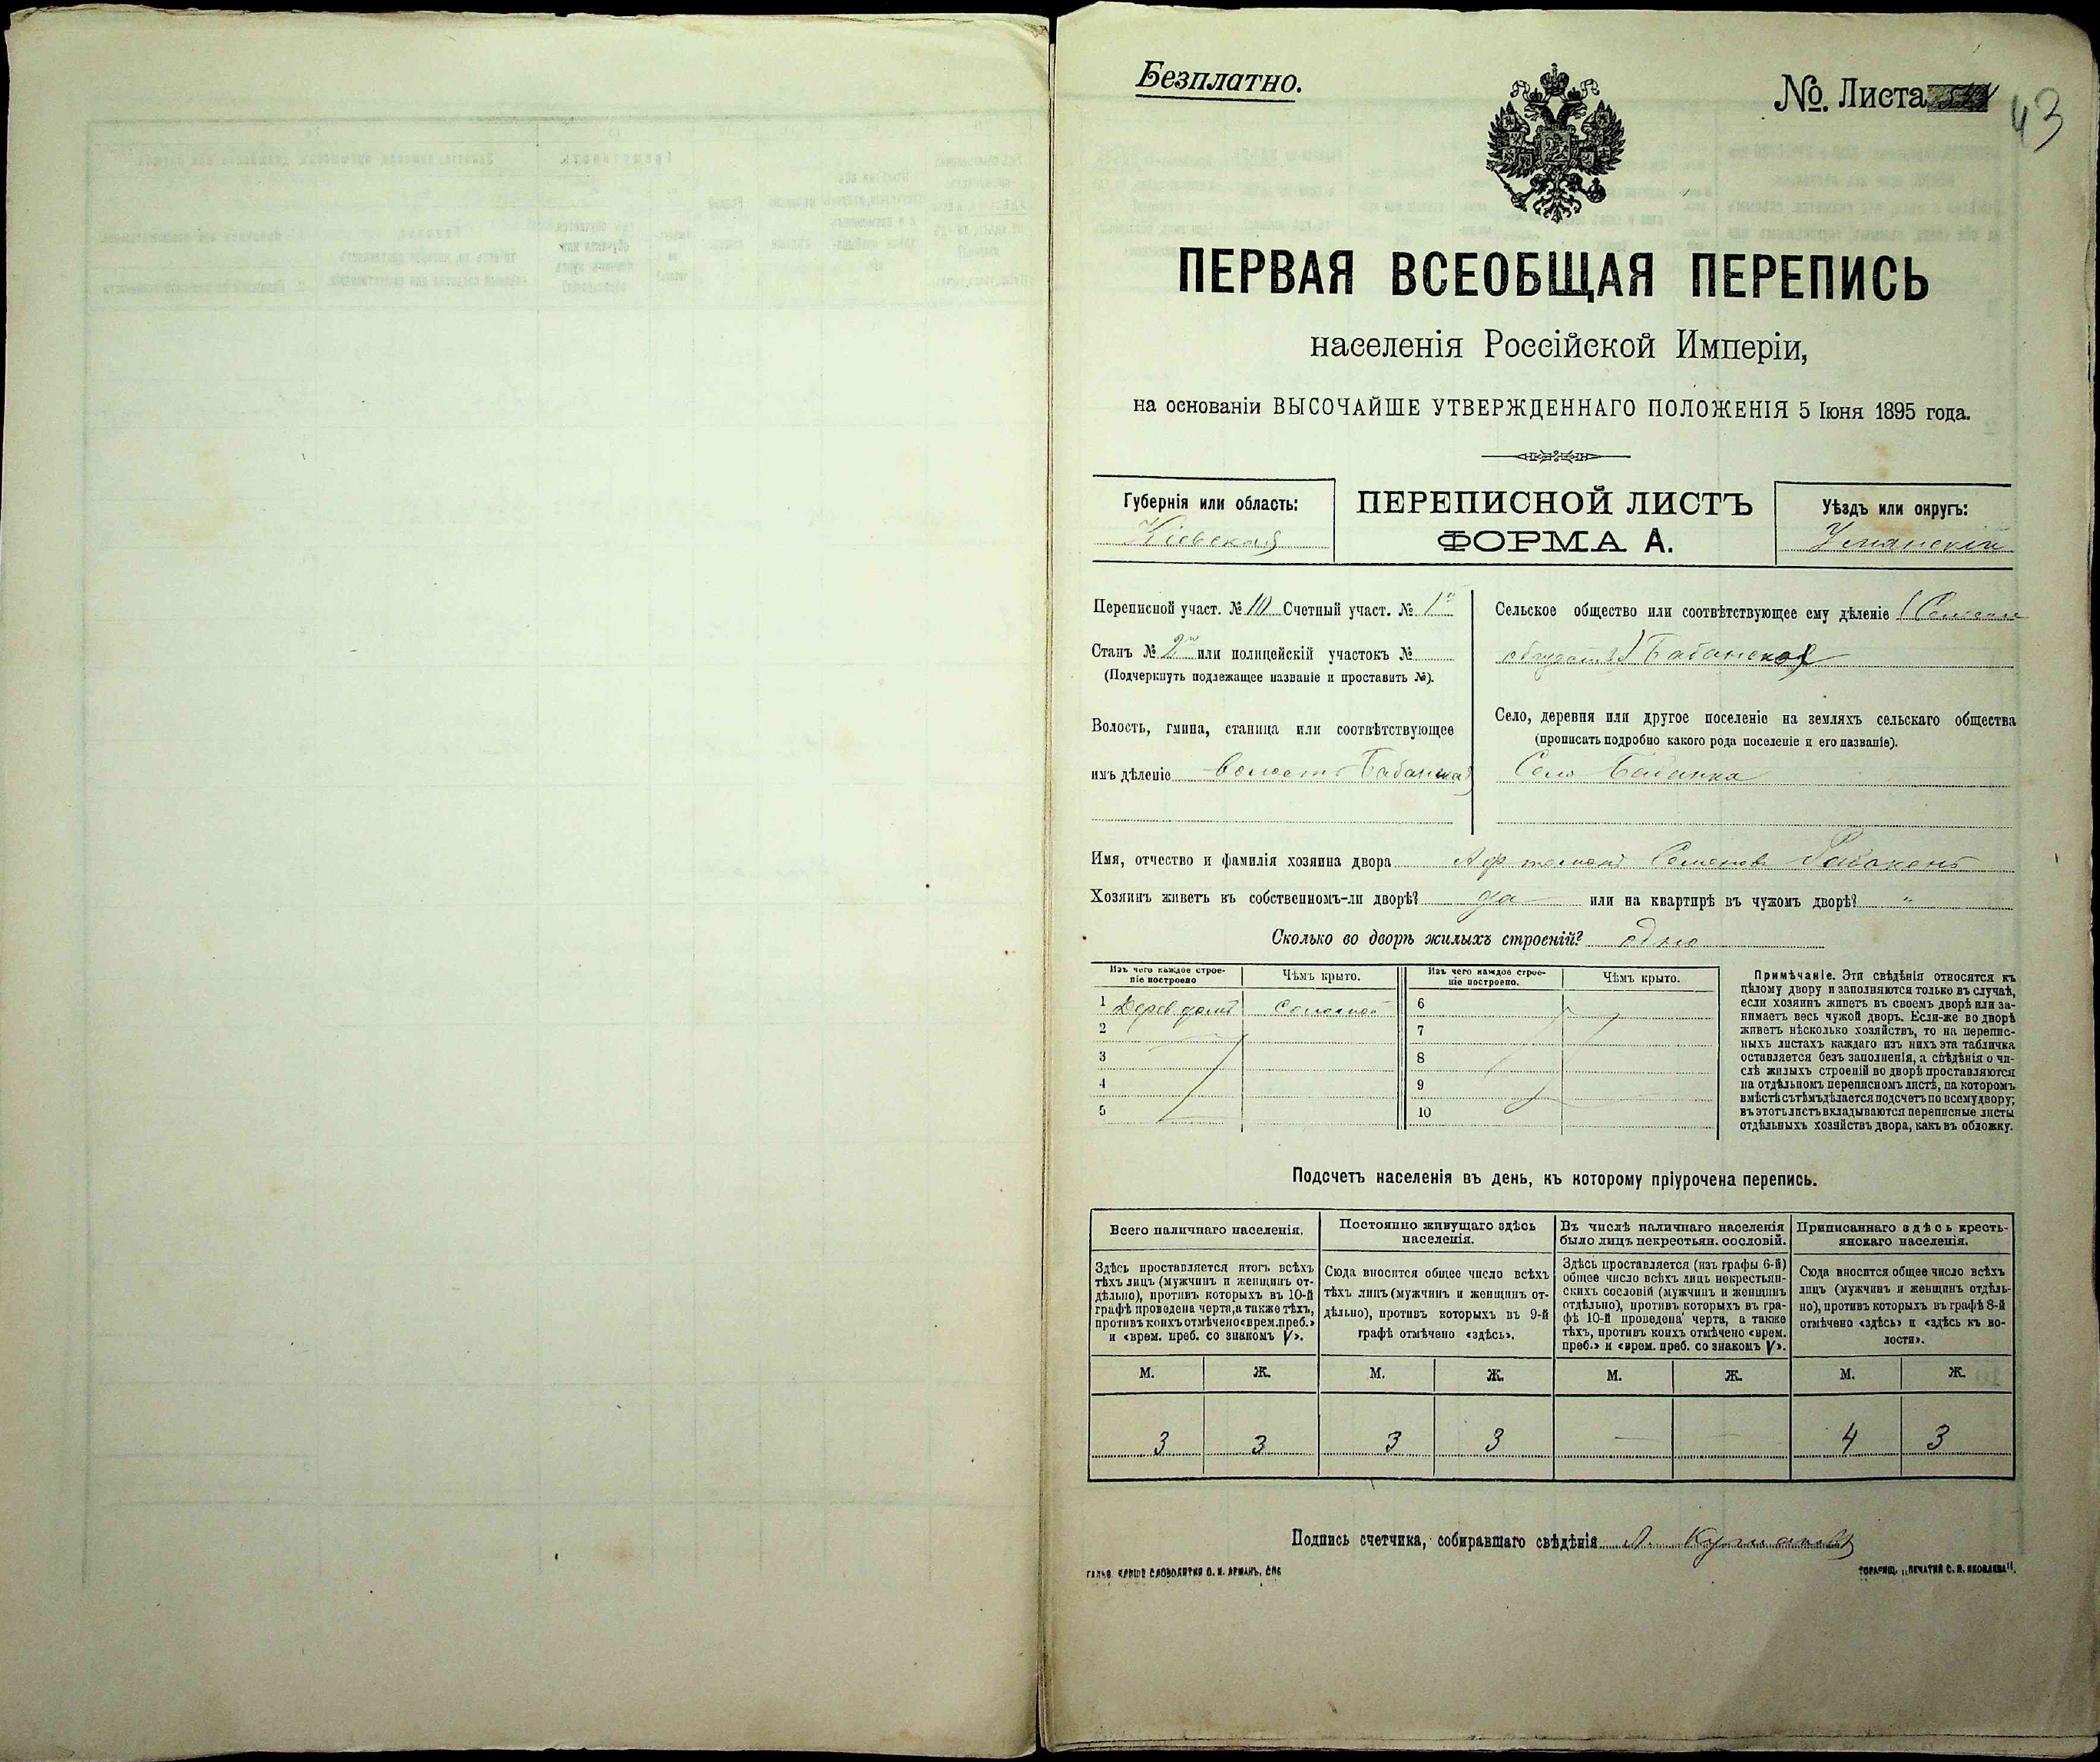 Безплатно.
№. Листа
43
ПЕРВАЯ ВСЕОБЩАЯ ПЕРЕПИСЬ
населенія Россійской Имперіи,
на основаніи ВЫСОЧАЙШЕ УТВЕРЖДЕННАГО ПОЛОЖЕНІЯ 5 Іюня 1895 года.
Губернія или область:
Кіевская
ПЕРЕПИСНОЙ ЛИСТЪ
ФОРМА А.
Уѣздъ или округъ:
Уманскій
Переписной участ. № 10 Счетный участ. № 1й
Станъ № 2й или полицейскій участокъ №
(Подчеркнуть подлежащее названіе и проставить №).
Волость, гмина, станица или соотвѣтствующее
имъ дѣленіе волость Бабанская
Сельское общество или соотвѣтствующее ему дѣленіе
Бабанское
Село, деревня или другое поселеніе на земляхъ сельскаго общества
(прописать подробно какого рода поселеніе и его названіе).
Село Бабанка
Имя, отчество и фамилія хозяина двора Семеновъ
Хозяинъ живетъ въ собственномъ-ли дворѣ? да или на квартирѣ въ чужомъ дворѣ? "
Сколько во дворѣ жилыхъ строеній? одно
Изъ чего каждое строе-
ніе построено
Чѣмъ крыто.
Изъ чего каждое строе-
ніе построено.
Чѣмъ крыто.
1 Дерев домъ Соломой
2
3
4
5
6
7
8
9
10
Примѣчаніе. Эти свѣдѣнія относятся къ
цѣлому двору и заполняются только въ случаѣ,
если хозяинъ живетъ въ своемъ дворѣ или за-
нимаетъ весь чужой дворъ. Если-же во дворѣ
живетъ нѣсколько хозяйствъ, то на перепис-
ныхъ листахъ каждаго изъ нихъ эта табличка
оставляется безъ заполненія, а свѣдѣнія о чи-
слѣ жилыхъ строеній во дворѣ проставляются
на отдѣльномъ переписномъ листѣ, на которомъ
вмѣстѣ съ тѣмъ дѣлается подсчетъ по всему двору;
въ этотъ листъ вкладываются переписные листы
отдѣльныхъ хозяйствъ двора, какъ въ обложку.
Подсчетъ населенія въ день, къ которому пріурочена перепись.
Всего наличнаго населенія.
Здѣсь проставляется итогъ всѣхъ
тѣхъ лицъ (мужчинъ и женщинъ от-
дѣльно), противъ которыхъ въ 10-й
графѣ проведена черта, а также тѣхъ,
противъ коихъ отмѣчено «врем. преб.»
и «врем. преб. со знакомъ V».
Постоянно живущаго здѣсь
населенія.
Сюда вносится общее число всѣхъ
тѣхъ лицъ (мужчинъ и женщинъ от-
дѣльно), противъ которыхъ въ 9-й
графѣ отмѣчено «здѣсь».
Въ числѣ наличнаго населенія
было лицъ некрестьян. сословій.
Здѣсь проставляется (изъ графы 6-й)
общее число всѣхъ лицъ некрестьян-
скихъ сословій (мужчинъ и женщинъ
отдѣльно), противъ которыхъ въ гра-
фѣ 10-й проведена черта, а также
тѣхъ, противъ коихъ отмѣчено «врем.
преб.» и «врем. преб. со знакомъ V».
Приписаннаго здѣсь кресть-
янскаго населенія.
Сюда вносится общее число всѣхъ
лицъ (мужчинъ и женщинъ отдѣль-
но), противъ которыхъ въ графѣ 8-й
отмѣчено «здѣсь» и «здѣсь къ во-
лости».
М. Ж. М. Ж. М. Ж. М. Ж.
3 3 3 3 — — 4 3
Подпись счетчика, собиравшаго свѣдѣнія
ТОВАРИЩ. „ПЕЧАТНЯ С. П. ЯКОВЛЕВА".